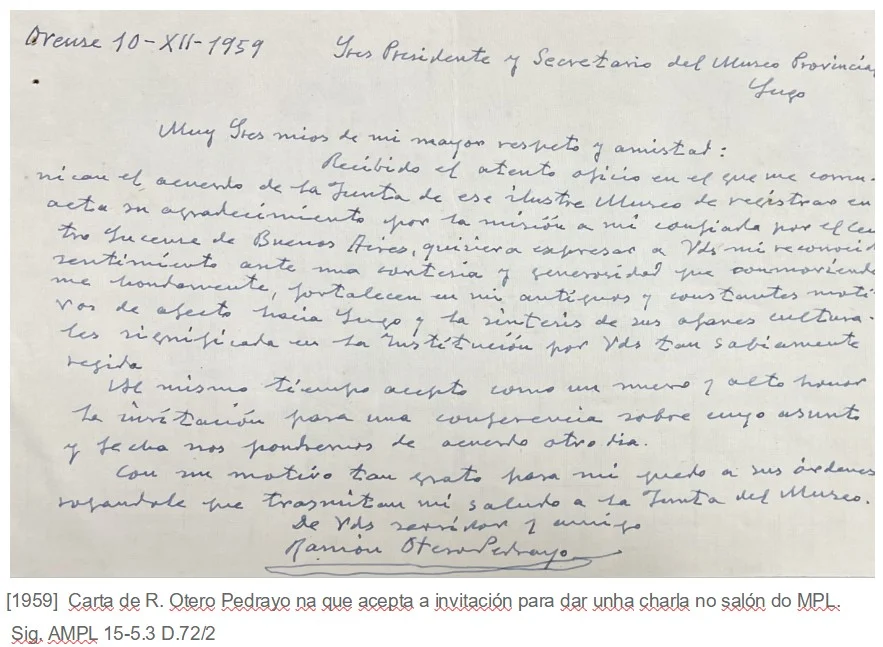 Orense 10-XII-1959
Sres Presidente y Secretario del Museo Provincial
Lugo
Muy Sres mios de mi mayor respeto y amistad:
Recibido el atento oficio en el que me comu-
nican el acuerdo de la Junta de ese ilustre Museo de registrar en
acta su agradecimiento por la misión a mi confiada por el Cen
tro Lucense de Buenos Aires, quisiera expresar a Vds mi reconocid
sentimiento ante una cortesía y generosidad que conmoviendo
me hondamente, fortalecen en mi antiguos y constantes moti
vos de afecto hacia Lugo y la síntesis de sus afanes cultura-
les significada en la Institución por Vds tan sabiamente
regida
Al mismo tiempo acepto como un nuevo y alto honor
la invitación para una conferencia sobre cuyo asunto
y fecha nos pondremos de acuerdo otro dia.
Con un motivo tan grato para mi quedo a sus órdenes
rogandole que trasmitan mi saludo a la Junta del Museo.
De Vds servidor y amigo
Ramón Otero Pedrayo
[1959] Carta de R. Otero Pedrayo na que acepta a invitación para dar unha charla no salón do MPL.
Sig. AMPL 15-5.3 D.72/2